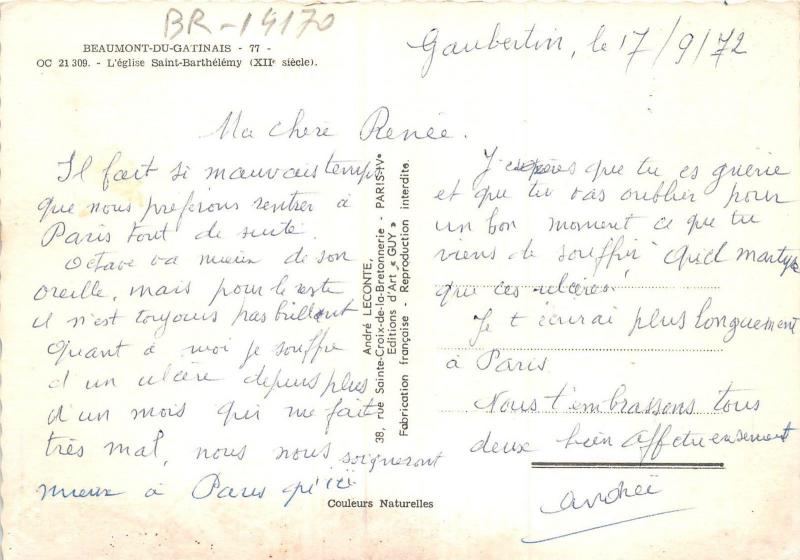 BR-14170
BEAUMONT-DU-GATINAIS - 77 -
OC 21 309. - L'église Saint-Barthélémy (XIIe siècle).
Gaubertin, le 17/9/72
Ma chere Renée.
Il fait si mauvais temps
que nous préférons rentrer à
Paris tout de suite.
Octave va mieux de son
oreille, mais pour le reste
il n'est toujours pas brillant
Quant à moi je souffre
d'un ulcère depuis plus
d'un mois qui me fait
très mal, nous nous soigneront
mieux à Paris qu'ici
André LECONTE,
38, rue Sainte-Croix-de-la-Bretonnerie - PARIS-IVe
Editions d'Art « GUY »
Fabrication française - Reproduction interdite.
Couleurs Naturelles
J'espères que tu es guérie
et que tu vas oublier pour
un bon moment ce que tu
viens de souffrir quel martyre
que ces ulcères!
Je t'écrirai plus longuement
à Paris.
Nous t'embrassons tous
deux bien affectueusement
Andrée